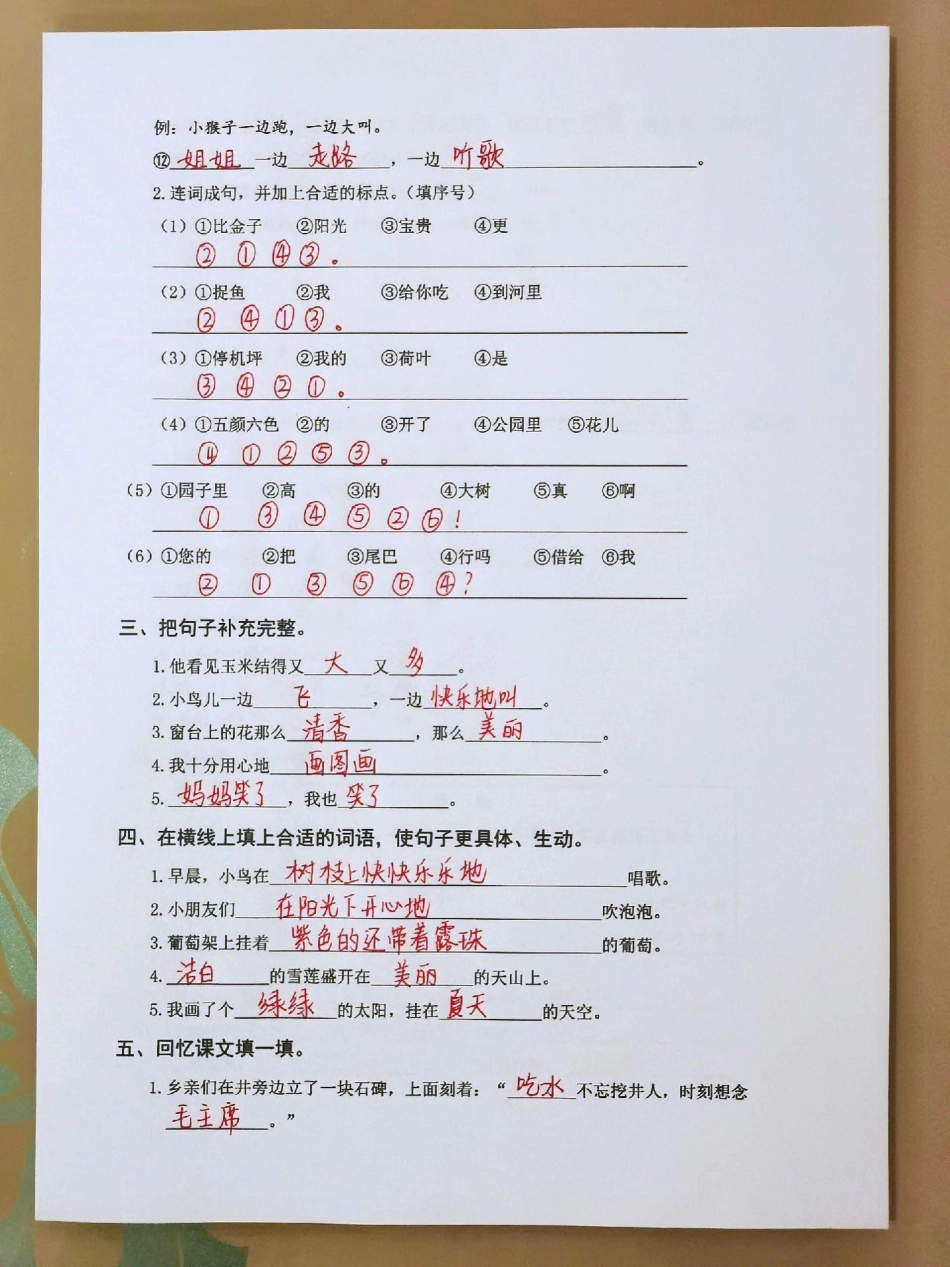 例：小猴子一边跑，一边大叫。
⑫姐姐一边走路，一边听歌。
2.连词成句，并加上合适的标点。（填序号）
（1）①比金子 ②阳光 ③宝贵 ④更
② ① ④ ③ 。
（2）①捉鱼 ②我 ③给你吃 ④到河里
② ④ ① ③ 。
（3）①停机坪 ②我的 ③荷叶 ④是
③ ④ ② ① 。
（4）①五颜六色 ②的 ③开了 ④公园里 ⑤花儿
④ ① ② ⑤ ③ 。
（5）①园子里 ②高 ③的 ④大树 ⑤真 ⑥啊
① ③ ④ ⑤ ② ⑥ ！
（6）①您的 ②把 ③尾巴 ④行吗 ⑤借给 ⑥我
② ① ③ ⑤ ⑥ ④ ？
三、把句子补充完整。
1.他看见玉米结得又大又多。
2.小鸟儿一边飞，一边快乐地叫。
3.窗台上的花那么清香，那么美丽。
4.我十分用心地画图画。
5.妈妈笑了，我也笑了。
四、在横线上填上合适的词语，使句子更具体、生动。
1.早晨，小鸟在树枝上快快乐乐地唱歌。
2.小朋友们在阳光下开心地吹泡泡。
3.葡萄架上挂着紫色的还带着露珠的葡萄。
4.洁白的雪莲盛开在美丽的天山上。
5.我画了个绿绿的太阳，挂在夏天的天空。
五、回忆课文填一填。
1.乡亲们在井旁边立了一块石碑，上面刻着：“吃水不忘挖井人，时刻想念
毛主席。”